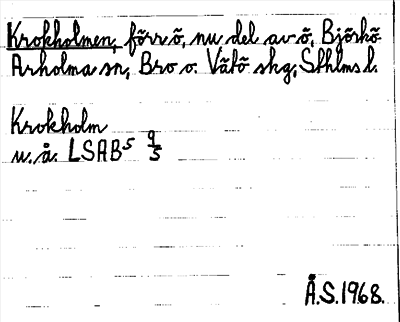 Krokholmen, förr ö, nu del av ö, Björkö
Arholma sn, Bro o. Vätö skg, Sthlms l.
Krokholm
u.å. LSAB⁵ 9/5
Å.S. 1968.